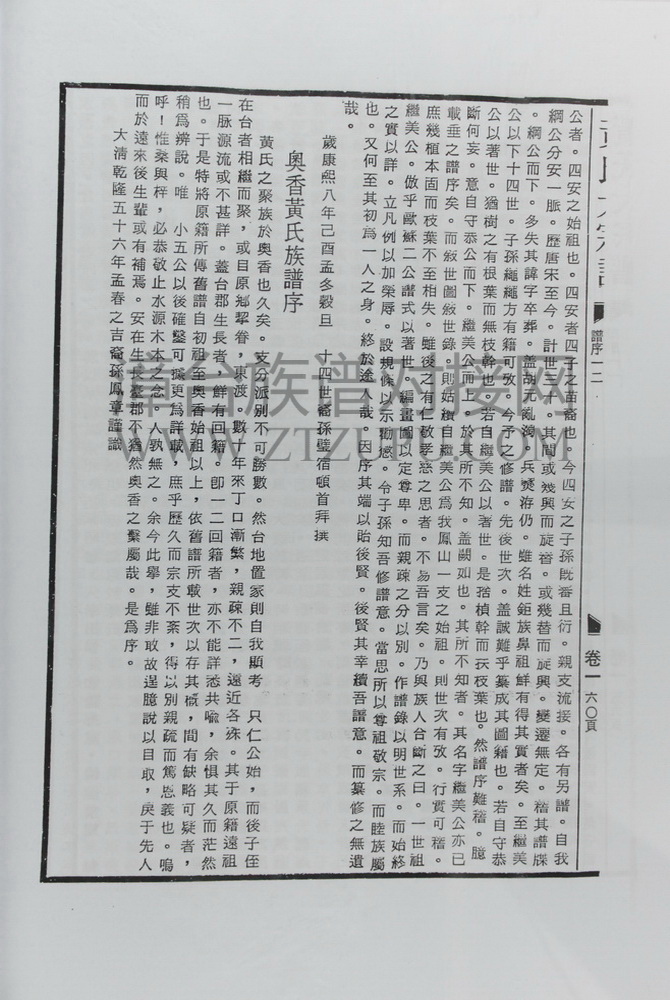 譜序一二
卷一 六〇頁
公者。四安之始祖也。四安者四子之苗裔也。今四安之子孫既蕃且衍。親支流接。各有另譜。自我
綱公分安一脈。歷唐宋至今。計世三十。其間或幾興而旋替。或幾替而旋興。變遷無定。稽其譜牒
。綱公而下。多失其諱字卒葬。蓋胡元亂海。兵燹洊仍。雖名姓鉅族鼻祖鮮有得其實者矣。至繼美
公以下十四世。子孫繩繩方有籍可攷。今予之修譜。先後世次。蓋誠難乎纂成其圖籍也。若自守恭
公以著世。猶樹之有根葉而無枝幹也。若自繼美公以著世。是猶楨幹而示枝葉也。然譜序難稽。臆
斷何妄。意自守恭公而下。繼美公而上。於其所不知。蓋闕如也。其所不知者。其名字繼美公亦已
載垂之譜序矣。而敘世圖敘世錄。則姑續自繼美公為我鳳山一支之始祖。則世次有攷。行實可稽。
庶幾植本固而枝葉不至相失。雖後之有仁敬孝慈之思者。不易吾言矣。乃與族人合斷之曰。一世祖
繼美公。倣乎歐蘇二公譜式以著世。編畫圖以定尊卑。而親疎之分以別。作譜錄以明世系。而始終
之實以詳。立凡例以加榮辱。設規條以示勸懲。令子孫知吾修譜意。當思所以尊祖敬宗。而睦族屬
也。又何至其初為一人之身。終於途人哉。因序其端以貽後賢。後賢其幸續吾譜意。而纂修之無遺
哉。
歲康熙八年己酉孟冬穀旦 十四世裔孫璧宿頓首拜撰
奧香黃氏族譜序
黃氏之聚族於奧香也久矣。支分派別不可勝數。然台地置家則自我顯考 只仁公始，而後子侄
在台者相繼而聚，或目原鄉挈眷，東渡。數十年來丁口漸繁，親疎不二，遠近各殊。其于原籍遠祖
一脈源流或不甚詳。蓋台郡生長者，鮮有回籍。卽一二回籍者，亦不能詳悉共喻，余惧其久而茫然
也。于是特將原籍所傳舊譜自初祖至奧香始祖以上，依舊譜所載世次以存其概，間有缺略可疑者，
稍爲辨說。唯 小五公以後確鑿可據更爲詳載，庶乎歷久而宗支不紊，得以別親疏而篤恩義也。嗚
呼！惟桑與梓，必恭敬止水源木本之念。人孰無之。余今此舉，雖非敢故逞臆說以目取，戾于先人
而於遠來後生輩或有補焉。安在生長臺郡不猶然奧香之繫屬哉。是爲序。
大淸乾隆五十六年孟春之吉裔孫鳳章謹識
漳台族谱对接网
WWW.ZTZUPU.COM